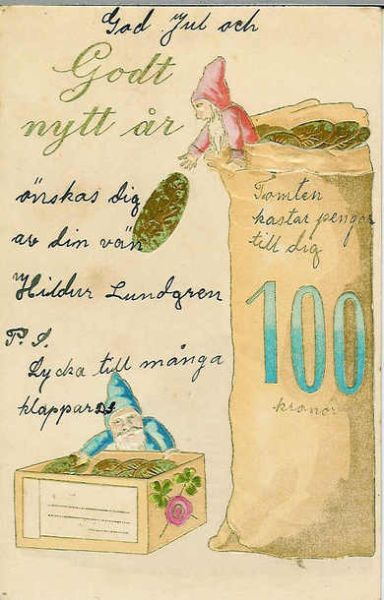 God Jul och
Godt
nytt år
önskas dig
av din vän
Hildur Lundgren
P.S.
Lycka till många
klappar
Tomten
kastar pengar
till dig
100
kronor